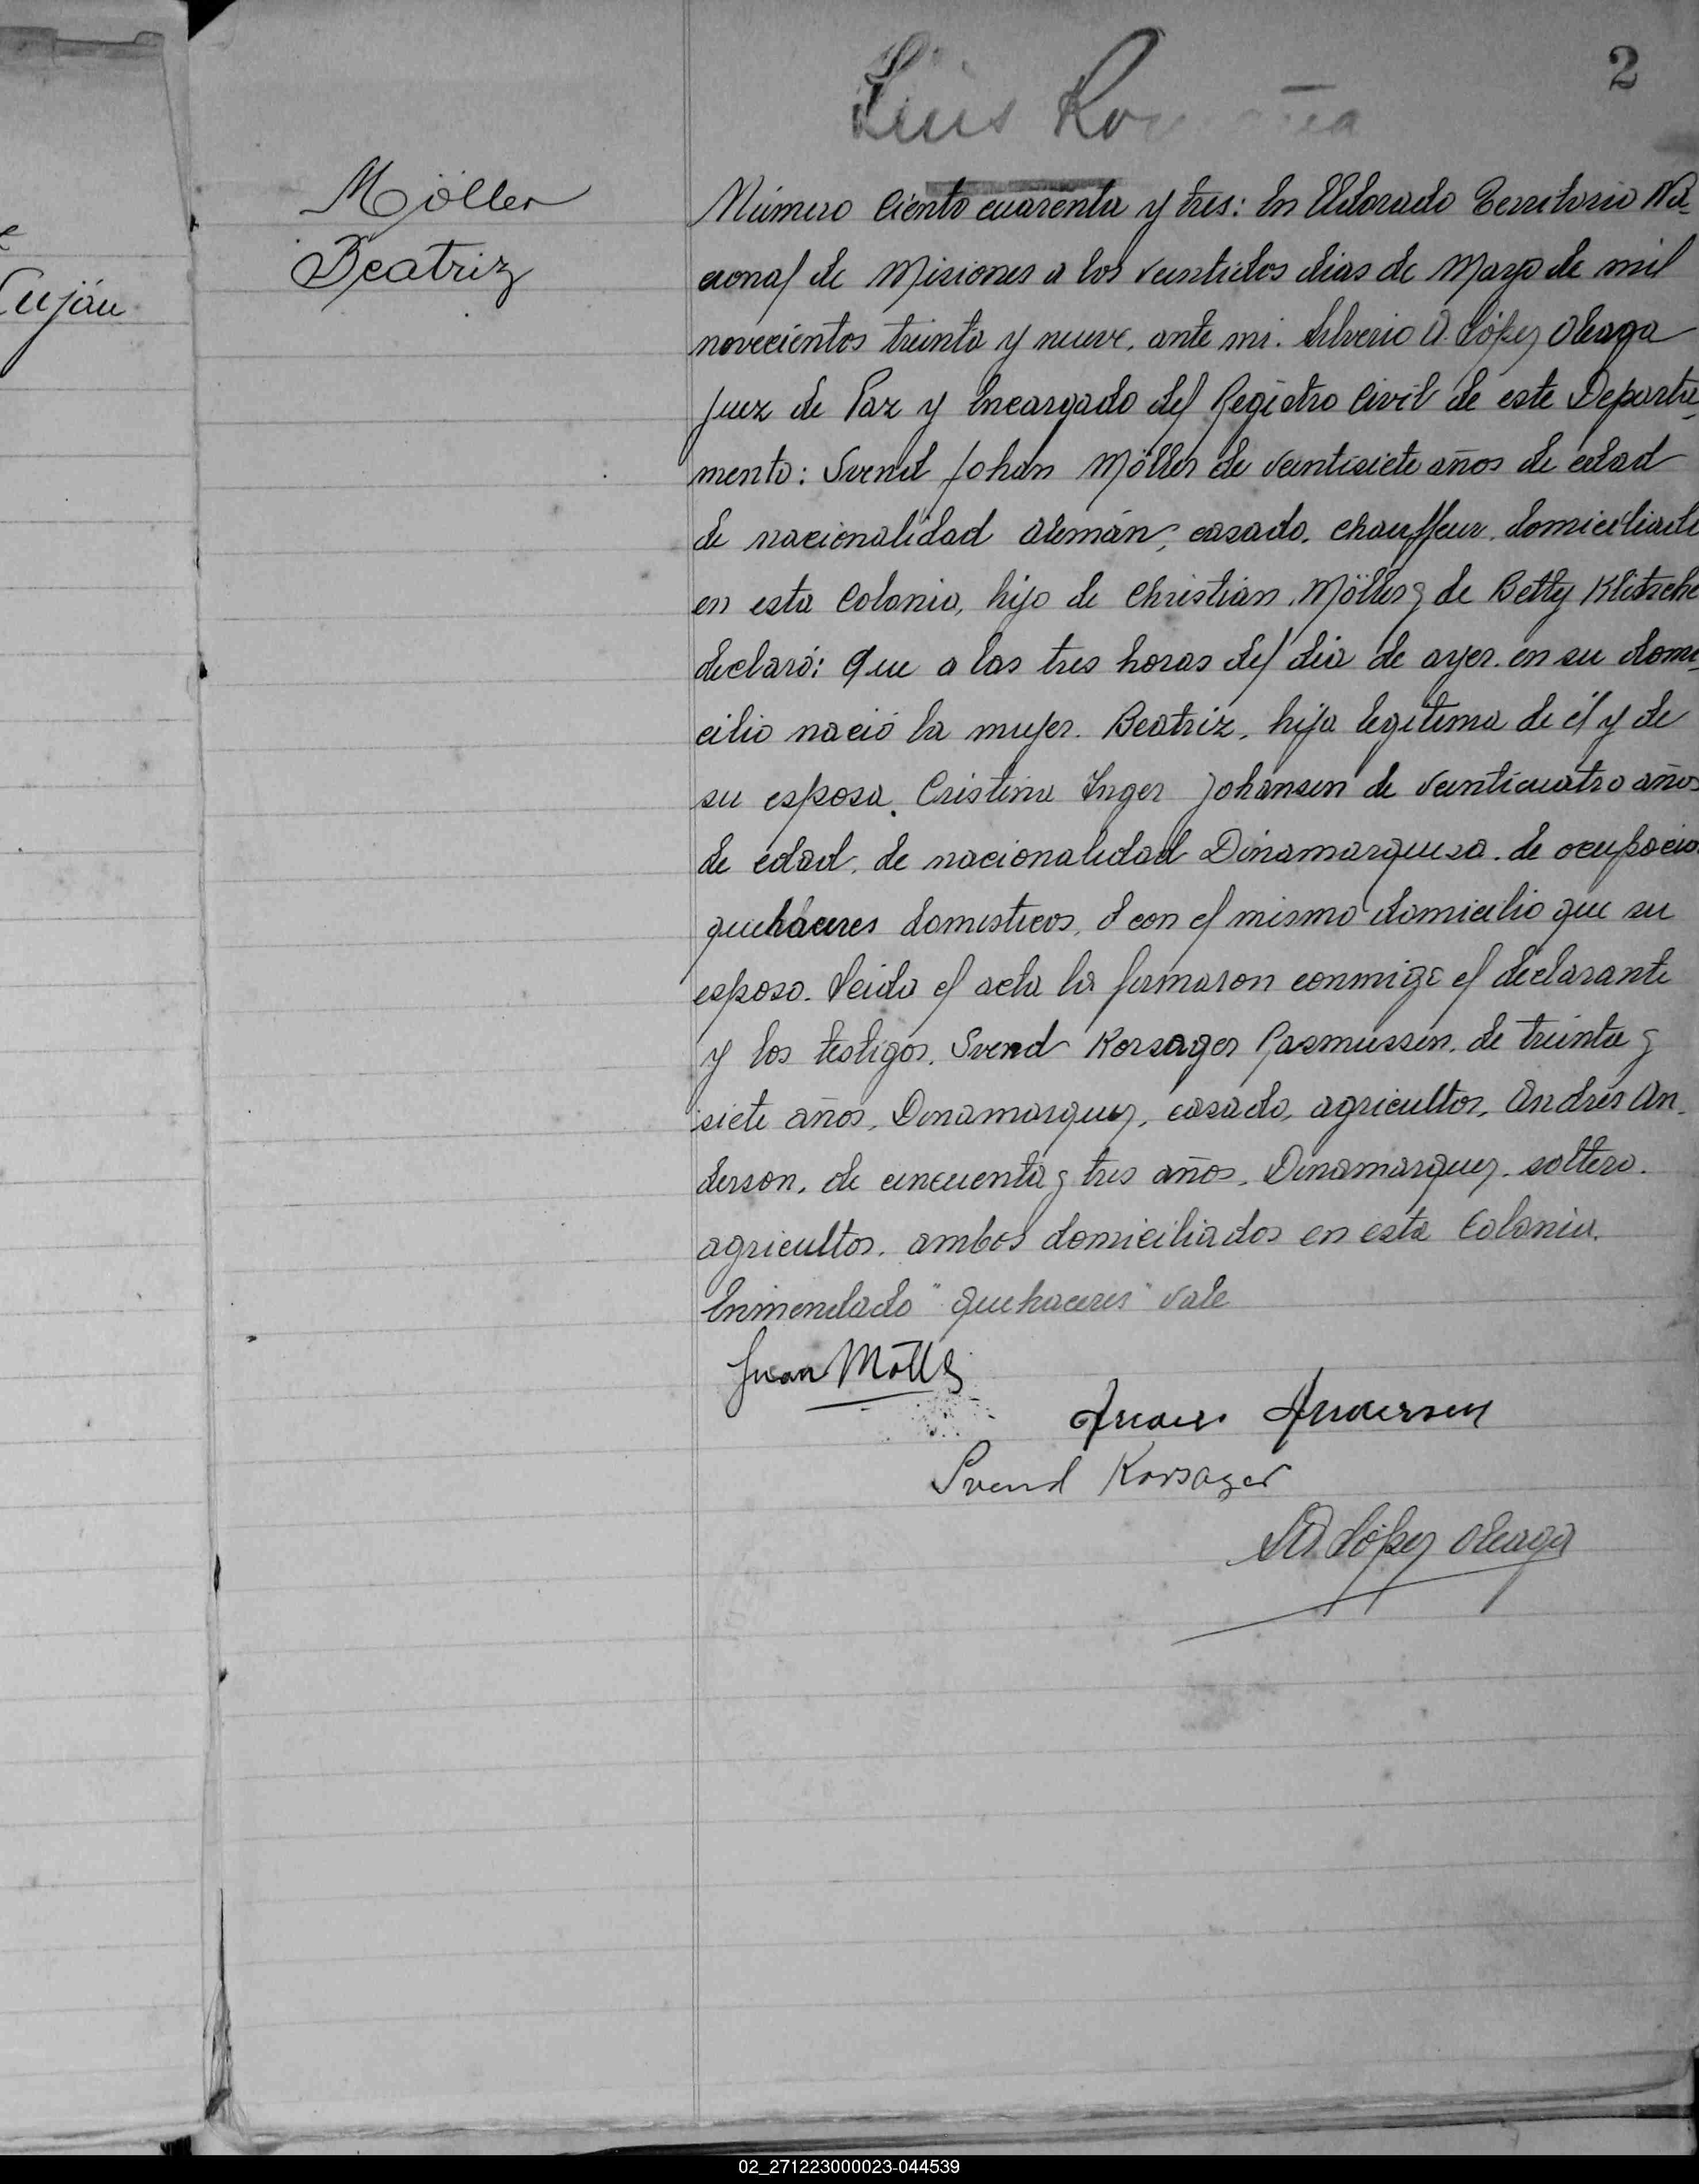 2
Luis
Luján
Möller
Beatriz
Número Ciento cuarenta y tres: En Eldorado Territorio Na-
cional de Misiones a los veintidos dias de Mayo de mil
novecientos treinta y nueve. ante mi. Silverio A. López Oleaga
Juez de Paz y Encargado del Registro Civil de este Departa-
mento: Svend Johan Möller de veintisiete años de edad
de nacionalidad Alemán, casado. chauffeur. domiciliado
en esta Colonia, hijo de Christian Möller y de Betty Klitsche
declaró: Que a las tres horas del dia de ayer. en su domi-
cilio nació la mujer. Beatriz. hija legitima de él y de
su esposa. Cristina Inger Johansen de veinticuatro años
de edad. de nacionalidad Dinamarquesa. de ocupacion
quehaceres domesticos, con el mismo domicilio que su
esposo. Leida el acta la firmaron conmigo el declarante
y los testigos. Svend Korsager Rasmussen. de treinta y
siete años, Dinamarquez, casado, agricultor, Andrés An-
derson. de cincuenta y tres años. Dinamarquez. soltero.
agricultor. ambos domiciliados en esta Colonia.
Enmendado "quehaceres" vale
Juan Möller
Andersen
Svend Korsager
SA López Oleaga
02_271223000023-044539